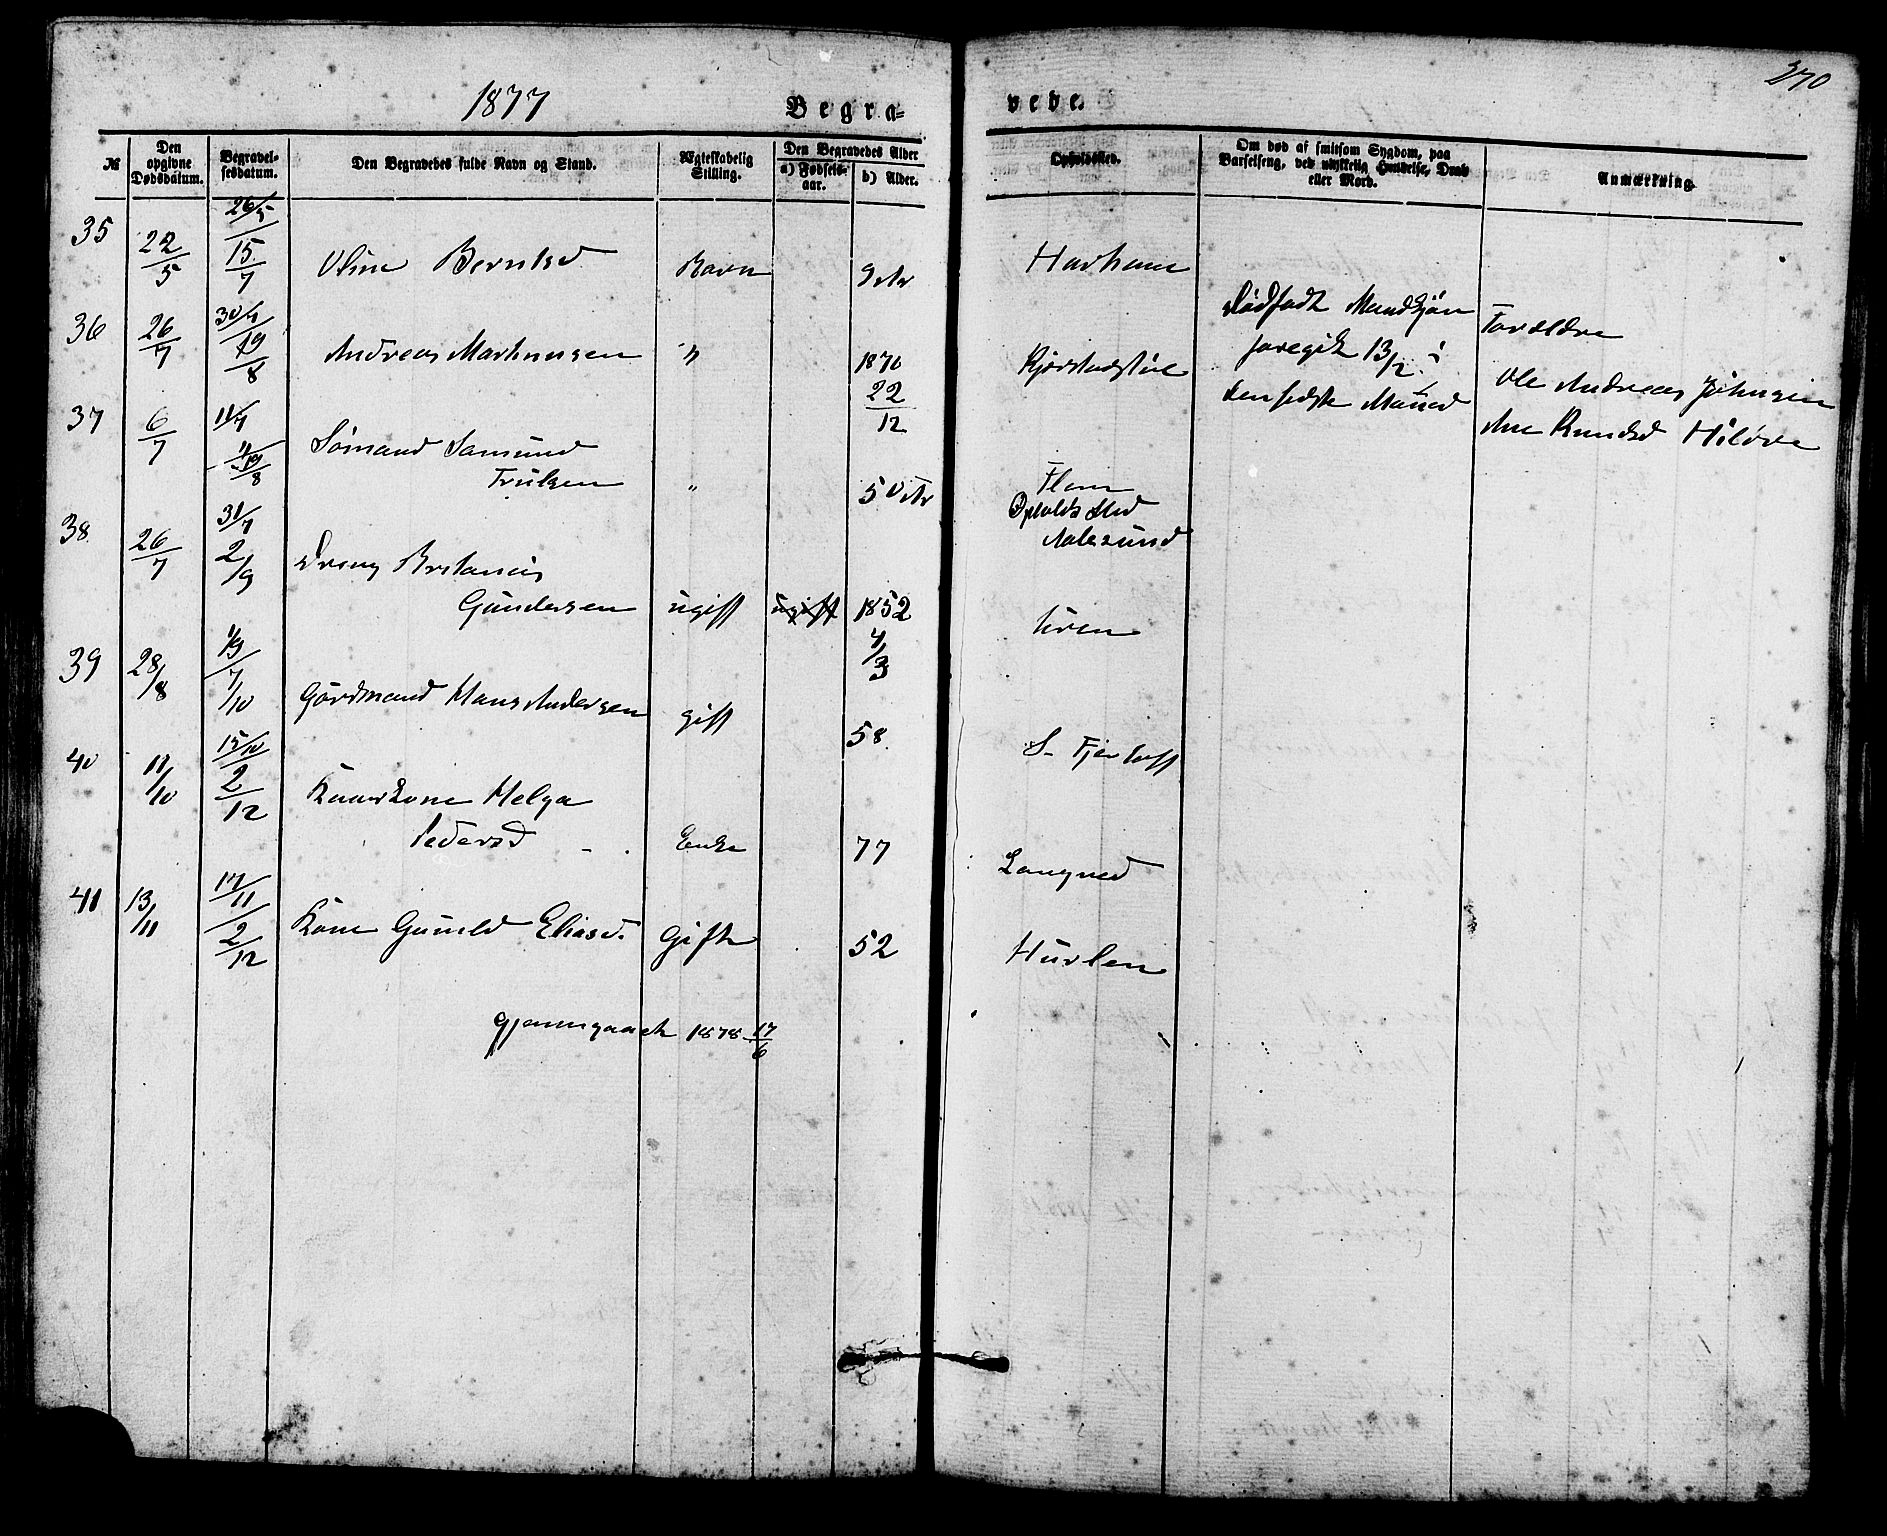 270
1877
Begra=
vede.
№
Den opgivne Dødsdatum.
Begravelsesdatum.
Den Begravedes fulde Navn og Stand.
Ægteskabelig Stilling.
Den Begravedes Alder
a) Fødselsaar.
b) Alder.
Opholdssted.
Om død af smitsom Sygdom, paa Barselseng, ved ulykkelig Hændelse, Drab eller Mord.
Anmærkning
35 22/5 26/5 15/7 Oline Berntsd Barn 9 Ar Harham
36 26/7 30/7 19/8 Andreas Martinusen " 1870 22/12
Dødfødt Mandkjøn
foregik 13/2 i
den sidste Maned
Forældre
Ole Andreas Johnsen
Ane Knudsd
37 6/7 11/7 19/8 Sømand Samund
Trulsen " 50 Ar Flem
Opholds Sted
Aalesund
38 26/7 31/7 2/9 Dreng
Gundersen ugift ugift 1852 4/3 Uren
39 28/8 1/9 7/10 Gardmand Hans Andersen gift 58 S- Fjertoft
40 11/10 15/10 2/12 Kaarkone Helga
Pedersd Enke 77
41 13/11 17/11 2/12 Kone Gunild Eliasd. Gift 52 Hurlen
Gjennemgaaet 1878 17/6